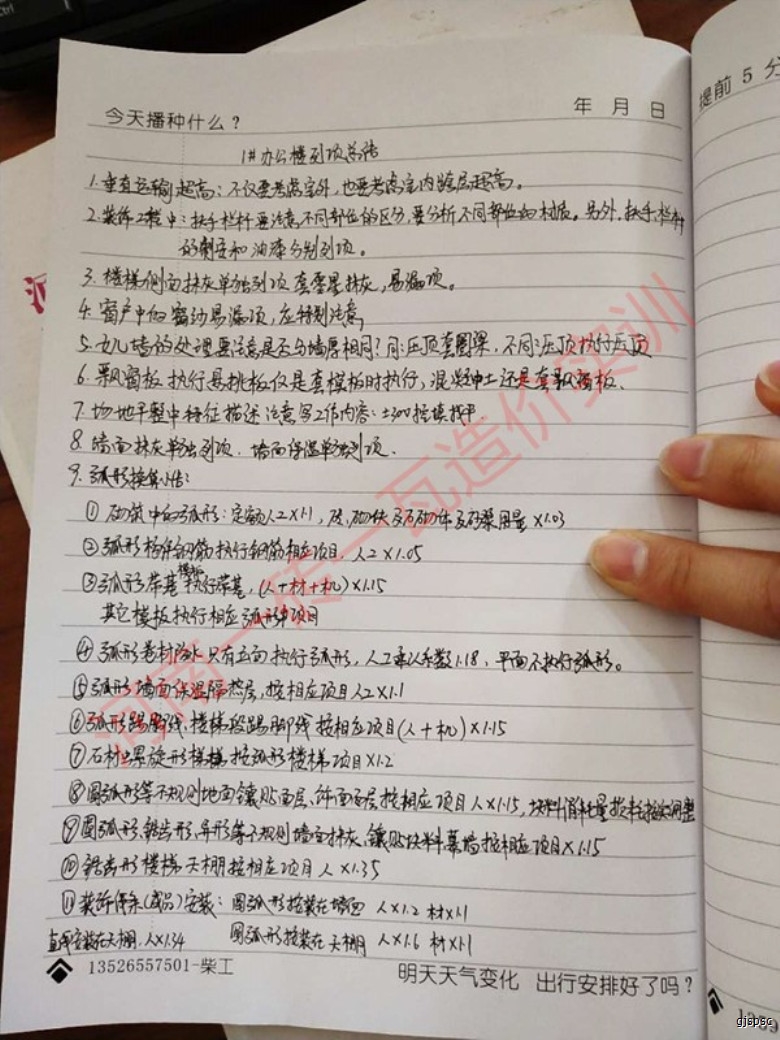 今天播种什么?
年 月 日
提前 5 分
1#办公楼列项总结
1.垂直运输超高:不仅要考虑室外,也要考虑室内跨层超高。
2.装饰工程中:扶手栏杆要注意不同部位的区分,要分析不同部位的材质。另外,扶手、栏杆
的制安和油漆分别列项。
3.楼梯侧面抹灰单独列项 套零星抹灰,易漏项。
4.窗户中的窗台易漏项,应特别注意
5.女儿墙的处理要注意是否与墙厚相同?同:压顶套圈梁,不同:压顶执行压顶
6.飘窗板执行悬挑板仅是套模板时执行,混凝土还是套飘窗板、
7.场地平整中特征描述注意写工作内容:±300挖填找平
8.墙面抹灰单独列项.墙面保温单独列项.
9.弧形换算小结:
①砌筑中的弧形:定额人工×1.1,砖、砌块及石砌体及砂浆用量×1.03
②弧形构件钢筋执行钢筋相应项目,人工×1.05
③弧形带基模板执行带基,(人+材+机)×1.15
其它模板执行相应弧形项目
④弧形卷材防水只有立面执行弧形,人工乘以系数1.18,平面不执行弧形。
⑤弧形墙面保温隔热层,按相应项目人工×1.1
⑥弧形踢脚线、楼梯段踢脚线按相应项目(人+机)×1.15
⑦石材螺旋形楼梯按弧形楼梯项目×1.2
⑧圆弧形等不规则地面镶贴面层、饰面面层按相应项目人×1.15,块料消耗量损耗按实调整
⑨圆弧形、锯齿形、异形等不规则墙面抹灰、镶贴块料、幕墙按相应项目×1.15
⑩锯齿形楼梯天棚按相应项目人×1.35
⑪装饰线条(成品)安装:圆弧形按装在墙面 人×1.2 材×1.1
直线安装在天棚,人×1.34 圆弧形按装在天棚 人×1.6 材×1.1
13526557501-柴工
明天天气变化 出行安排好了吗?
河南一砖一瓦造价实训
gjspsc